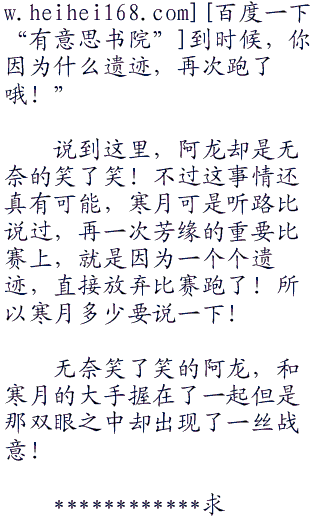 w.heihei168.com][百度一下
“有意思书院”]到时候，你
因为什么遗迹，再次跑了
哦！”
说到这里，阿龙却是无
奈的笑了笑！不过这事情还
真有可能，寒月可是听路比
说过，再一次芳缘的重要比
赛上，就是因为一个个遗
迹，直接放弃比赛跑了！所
以寒月多少要说一下！
无奈笑了笑的阿龙，和
寒月的大手握在了一起但是
那双眼之中却出现了一丝战
意！
************求